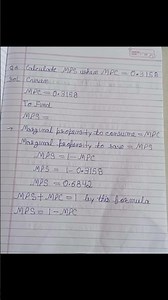 Calculate MPS when MPC = 0.3158
Given
MPC = 0.3158
To Find
MPS =
→ Marginal propensity to consume = MPC
Marginal propensity to save = MPS
MPS = 1 - MPC
MPS = 1 - 0.3158
MPS = 0.6842
MPS + MPC = 1 by this formula
MPS = 1 - MPC